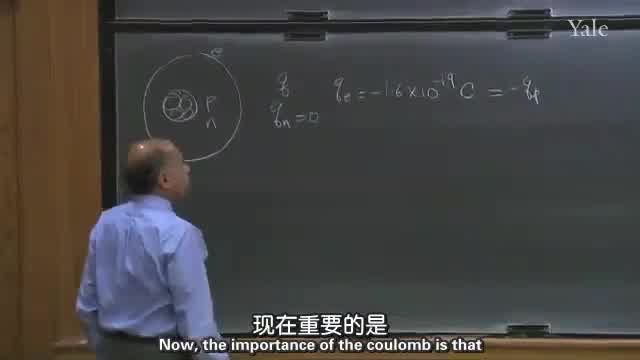 Yale
e
p
n
q q_e = -1.6 × 10^-19 C = -q_p
q_n = 0
现在重要的是
Now, the importance of the coulomb is that